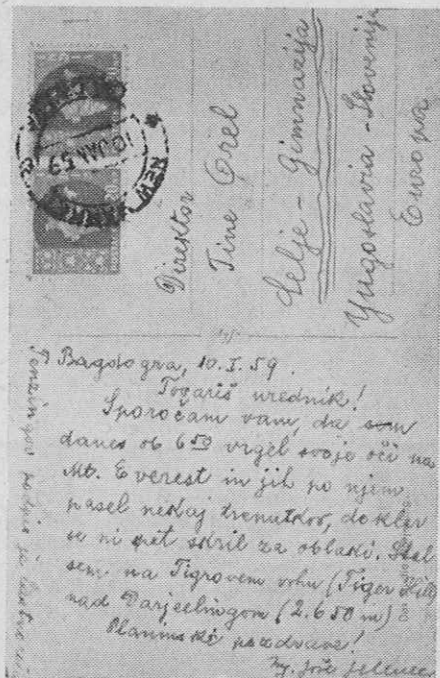 10 JAN 59
NEW
Direktor
Tine Orel
Celje - Gimnazija
Yugoslavia - Slovenija
Europa
Bagdogra, 10.I.59.
Tovariš urednik!
Sporočam vam, da sem
danes ob 6 50 vrgel svoje oči na
Mt. Everest in jih po njem
pasel nekaj trenutkov, dokler
se ni spet skril za oblaki. Stal
sem na Tigrovem vrhu (Tiger Hill)
nad Darjeelingom (2.650 m)
Planinske pozdrave!
Ing. Jože
Tenzingov podpis je